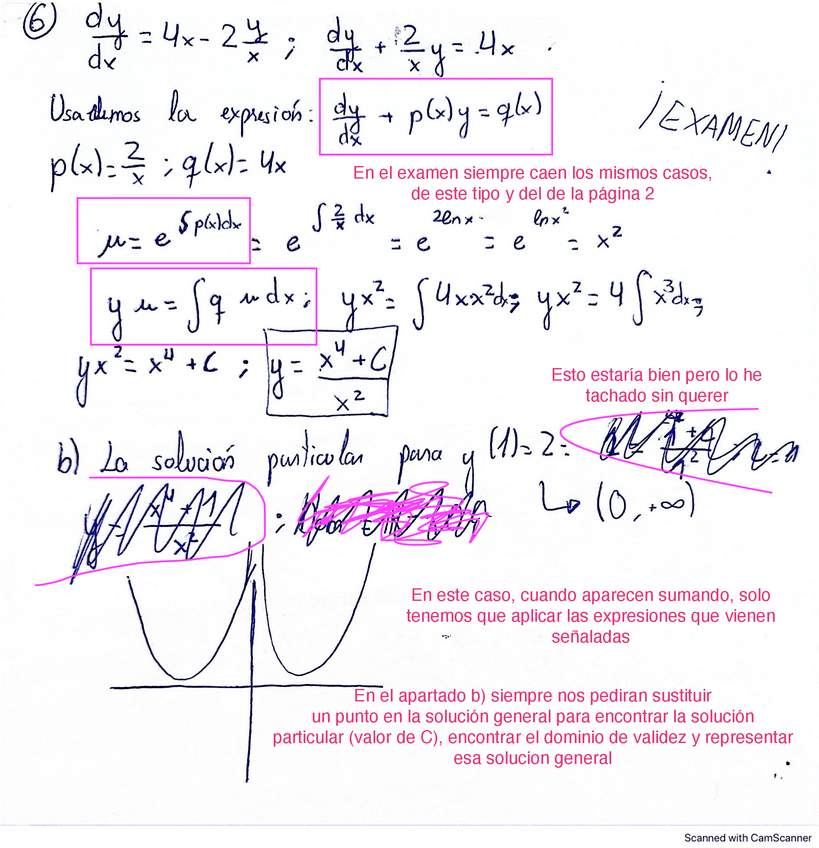 ⑥ dy/dx = 4x - 2 y/x ; dy/dx + 2/x y = 4x .
Usaremos la expresión: dy/dx + p(x) y = q(x)
¡EXAMEN!
p(x) = 2/x ; q(x) = 4x
En el examen siempre caen los mismos casos,
de este tipo y del de la página 2
μ = e^∫p(x)dx = e^∫2/x dx = e^2lnx = e^lnx² = x²
y μ = ∫ q μ dx ; yx² = ∫ 4xx²dx ; yx² = 4 ∫ x³dx ;
yx² = x⁴ + C ; y = (x⁴ + C)/x²
Esto estaría bien pero lo he
tachado sin querer
b) La solución particular para y (1) = 2 :
y = (x⁴ + 1)/x² ; ↳ (0, +∞)
En este caso, cuando aparecen sumando, solo
tenemos que aplicar las expresiones que vienen
señaladas
En el apartado b) siempre nos pediran sustituir
un punto en la solución general para encontrar la solución
particular (valor de C), encontrar el dominio de validez y representar
esa solucion general
Scanned with CamScanner